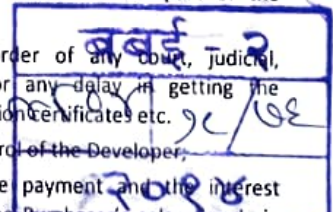 बबई - २
rder of any court, judicial,
or any delay in getting the
ion certificates etc.
१८/७६
rol of the Developer;
e payment and the interest
२०१४